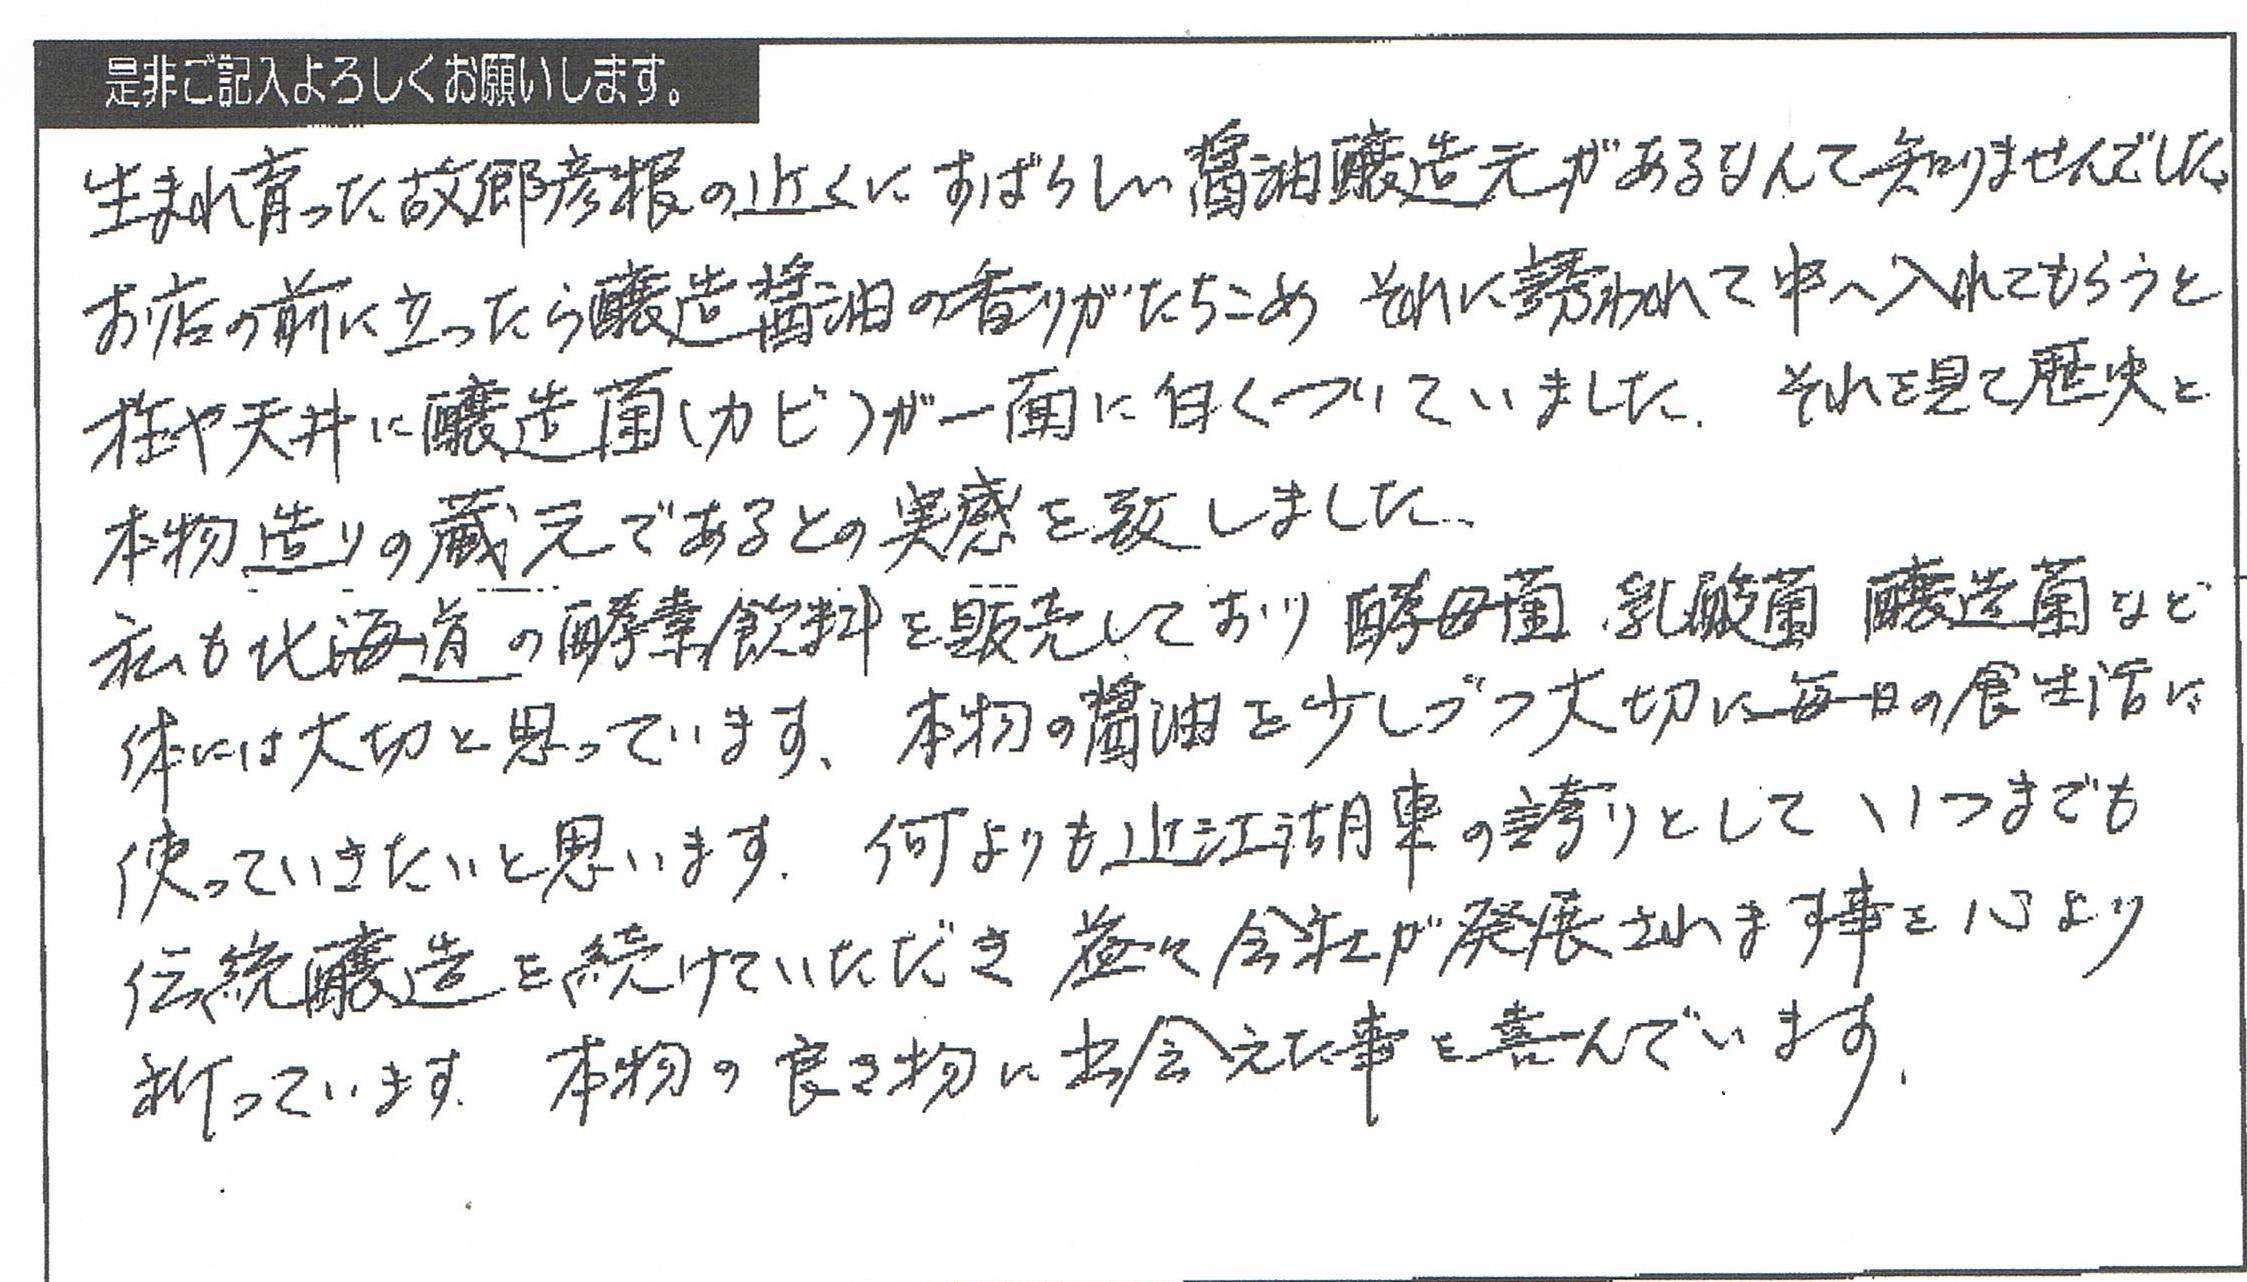 是非ご記入よろしくお願いします。
生まれ育った故郷彦根の近くにすばらしい醤油醸造元があるなんて知りませんでした。
お店の前に立ったら醸造醤油の香りがたちこめ それに誘われて中へ入れてもらうと
柱や天井に醸造菌(カビ)が一面に白くついていました。 それを見て歴史と
本物造りの蔵元であるとの実感を致しました。
私も北海道の酵素飲料を販売しており 酵母菌、乳酸菌 醸造菌など
体には大切と思っています、 本物の醤油を少しづつ大切に毎日の食生活に
使っていきたいと思います。 何よりも近江湖東の誇りとして いつまでも
伝統醸造を続けていただき 益々会社が発展されます事を心より
祈っています。 本物の良き物に出会えた事を喜んでいます。